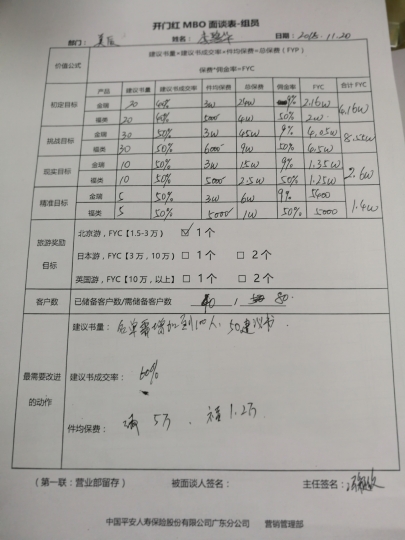 开门红 MBO 面谈表-组员
部门： 姓名： 日期：2018.11.20
价值公式 建议书量*建议书成交率*件均保费=总保费（FYP）
保费*佣金率=FYC
产品 建议书量 建议书成交率 件均保费 总保费 佣金率 FYC 合计 FYC
初定目标 金瑞 20 40% 3w 24w 9% 2.16w 4.16w
福类 20 40% 5000 4w 50% 2w
挑战目标 金瑞 30 50% 3w 45w 9% 4.05w 8.55w
福类 30 50% 6000 9w 50% 4.5w
现实目标 金瑞 10 50% 3w 15w 9% 1.35w 2.6w
福类 10 50% 5000 2.5w 50% 1.25w
精准目标 金瑞 5 50% 3w 6w 9% 5400 1.4w
福类 5 50% 5000 1w 50% 5000
旅游奖励目标
北京游，FYC【1.5-3万） ☑ 1 个
日本游，FYC【3万，10万） □ 1 个 □ 2 个
英国游，FYC【10万，以上】 □ 1 个 □ 2 个
客户数 已储备客户数/需储备客户数 40 / 80.
最需要改进的动作
建议书量：名单需增加到100人，50建议书.
建议书成交率：60%
件均保费： 5万，福1.2万
（第一联：营业部留存） 被面谈人签名： 主任签名：
中国平安人寿保险股份有限公司广东分公司 营销管理部